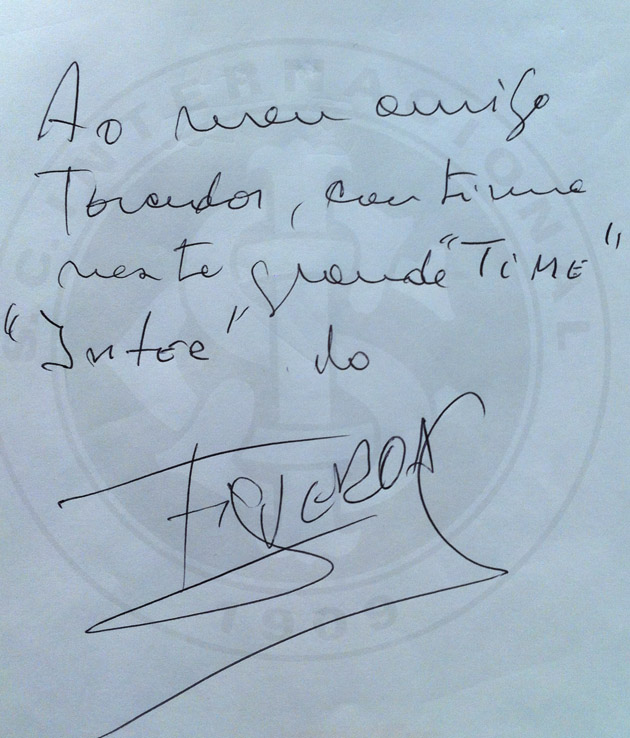 Ao meu amigo
Torcedor, continue
neste grande "TiME"
"Inter" do
FIGUEROA
S.C. INTERNACIONAL
1909